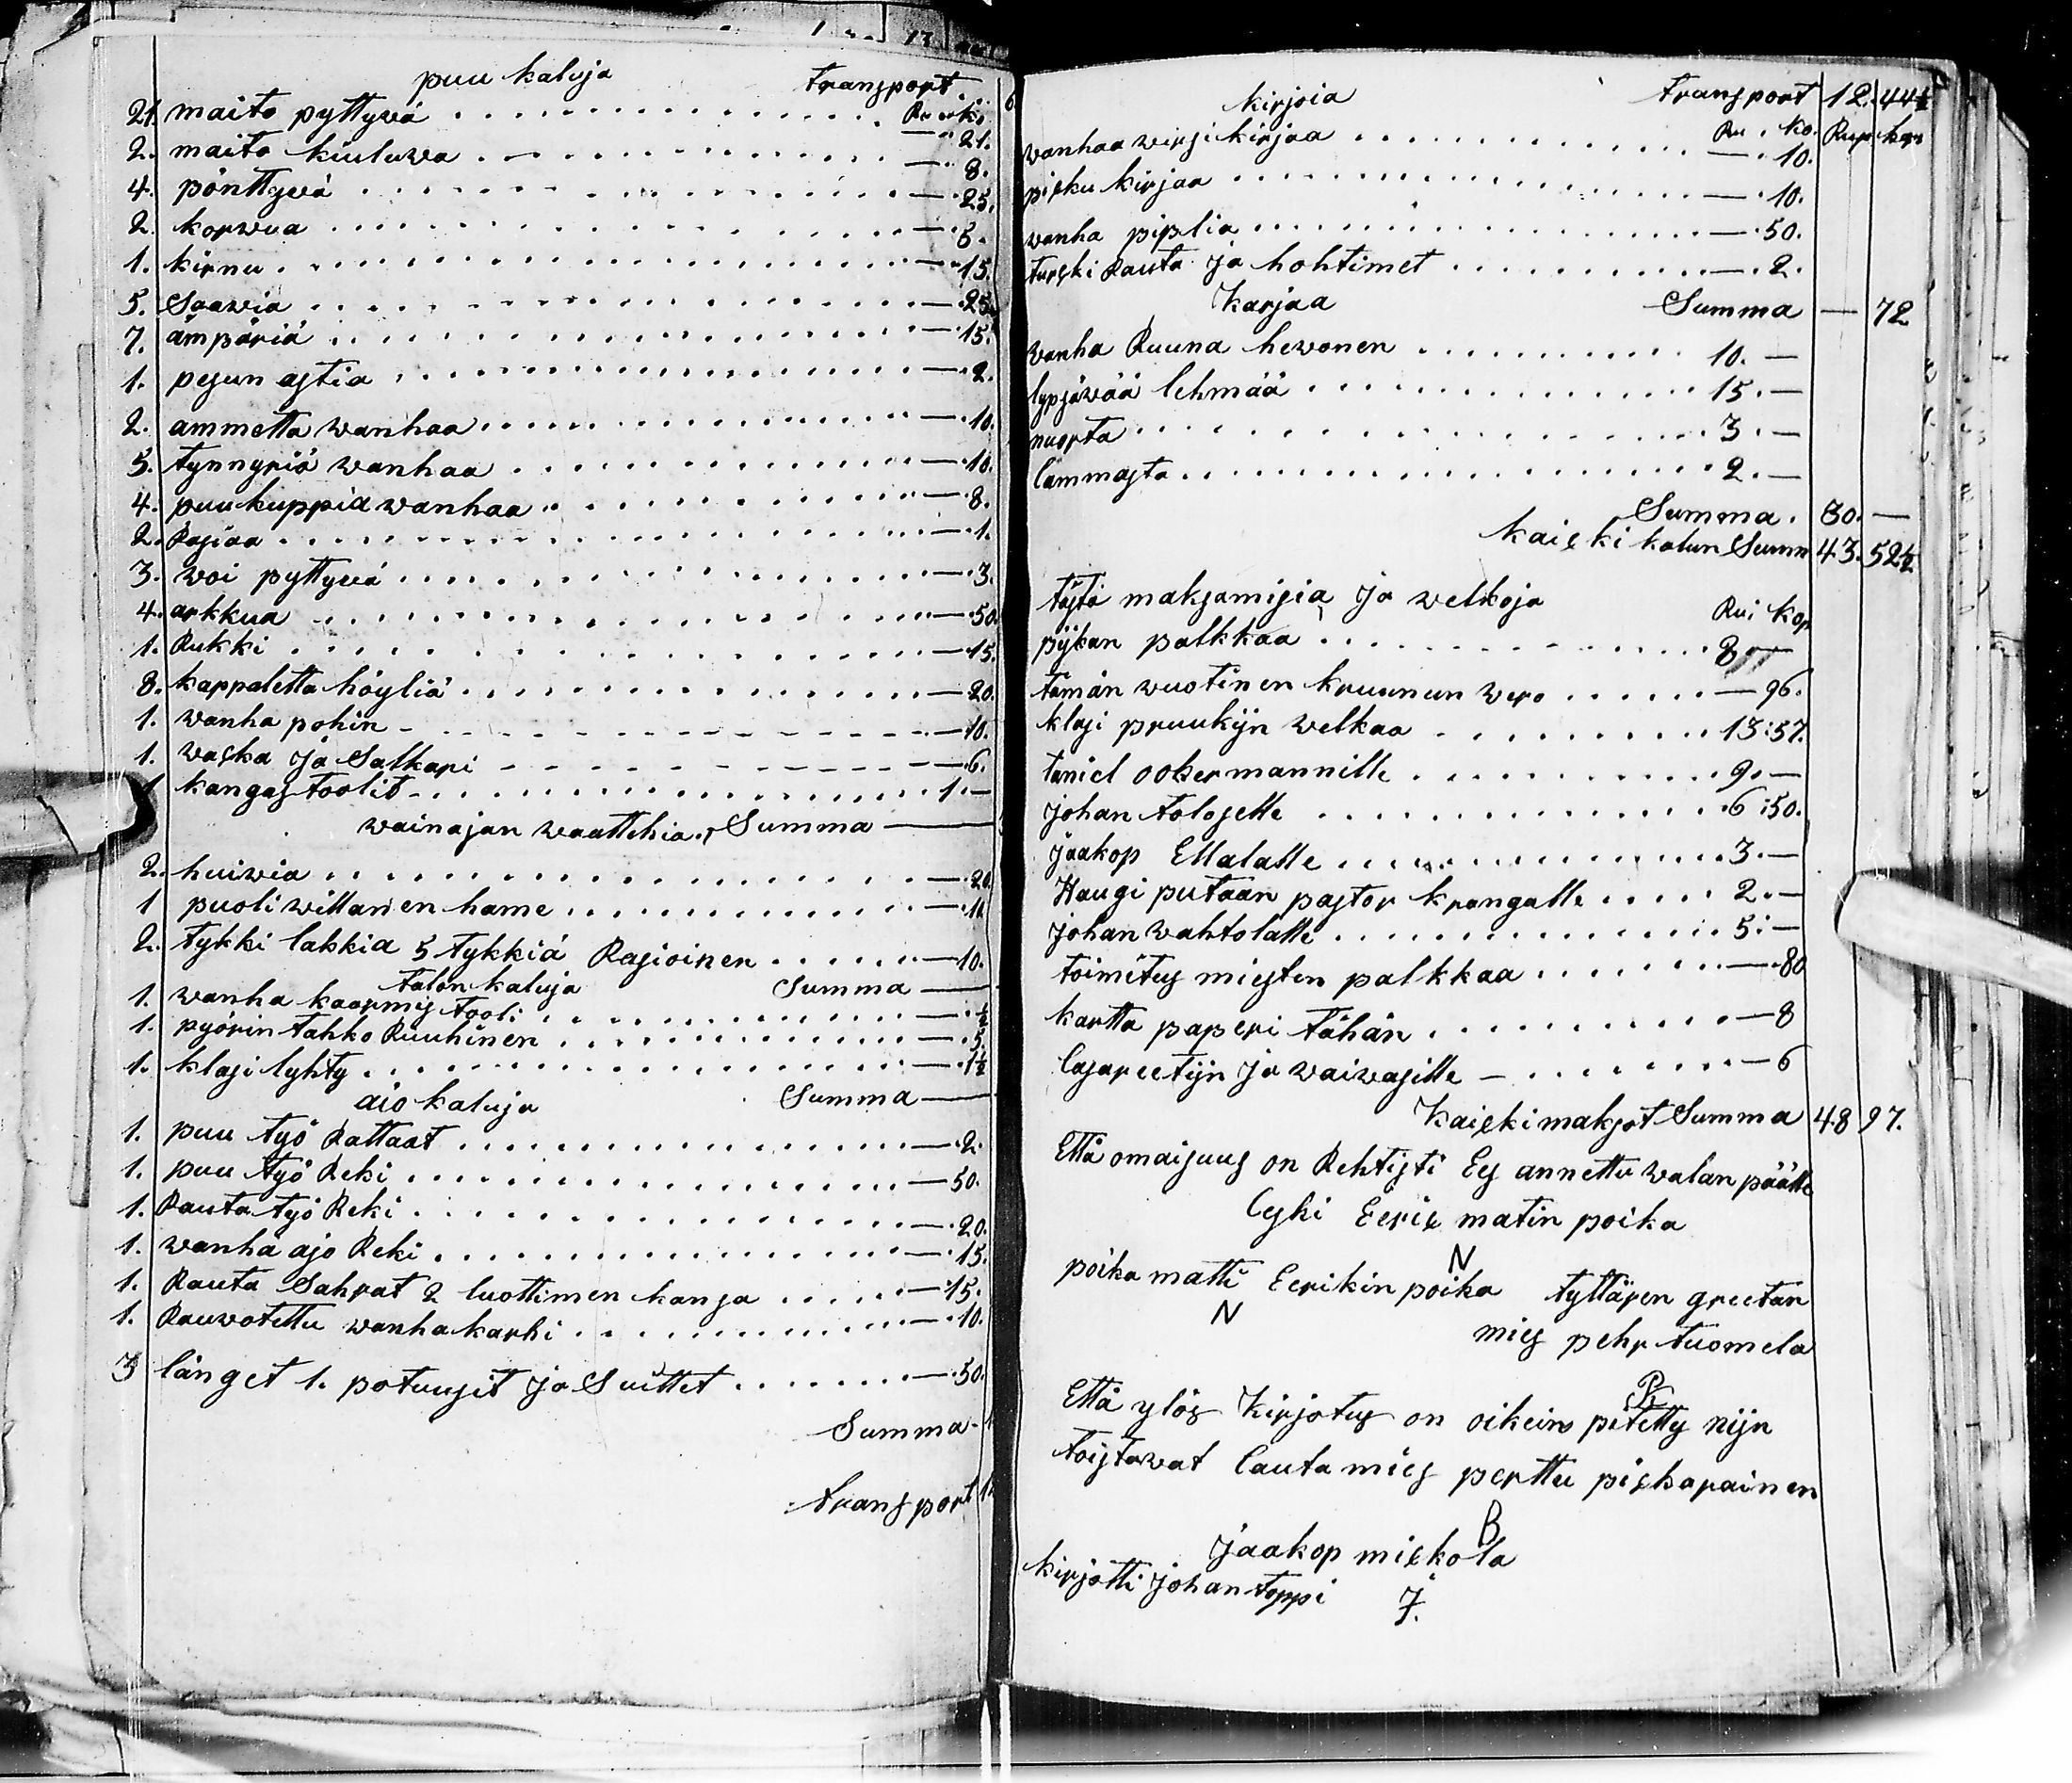 puu kaluja transport
Ru ki
21. maito pyttyvä — 21.
2. maito kiuluwa — 8.
4. pönttyvä — 25.
2. korwua — 6.
1. kirnu — 15.
5. Saawia — 25
7. ämpäriä — 15.
1. pesun astia — 2.
2. ammetta wanhaa — 10.
5. tynnyriä wanhaa — 10.
4. puukuppia wanhaa — 8.
2. Rasiaa — 1.
3. woi pyttyvä — 3.
4. arkkua — 50
1. Rukki — 15.
8. kappaletta höyliä — 20.
1. wanha pohin — 10.
1. waska ja Salkari — 6.
1 kangas toolit 1. —
wainajan waattehia. Summa —
2. huiwia — 20
1 puoliwillanen hame — 11
2. tykki lakkia 5 tykkiä Rasioinen — 10.
talon kaluja Summa —
1. wanha kaarmis tooli — ½
1. pyörin tahko Ruuhinen — 5.
1. klasi lyhty — 1½
aio kaluja Summa —
1. puu työ Rattaat — 2.
1. puu työ Reki — 50.
1. Rauta työ Reki — 20.
1. wanha ajo Reki — 15.
1. Rauta Sahrat 2 luottimen kansa — 15.
1. Rauwotettu wanha karhi — 10.
3 länget 1. patuusit ja Suittet — 50.
Summa
transport
kirjoia transport 12. 44½
Ru. ko. Rup kop
wanhaa wirsikirjaa — 10.
pisku kirjaa — 10.
wanha piplia — 50.
turski Rauta ja hohtimet — 2.
Karjaa Summa — 72
wanha Ruuna hewonen 10. —
lypsäwää lehmää 15. —
nuorta 3. —
lammasta 2. —
Summa. 30. —
kaiski kalun Summ 43. 52½
tästä maksamisia ja welkoja Ru: kop
pijkan palkkaa 8 —
tämän wuotinen kruunun wero — 96.
klasi pruukijn welkaa 13:57.
taniel ookermannille 9. —
Johan toloselle 6:50.
jaakop Ellalalle 3. —
Haugi putaan pastor krangalle 2. —
johan wahtolalle 5: —
toimitus miesten palkkaa — 80
kartta paperi tähän — 8
lasareetijn ja waiwasille — 6
Kaiski maksot Summa 48 97.
Että omaisuus on Rehtisti Es annettu walan päälle
Leski Eerik matin poika
N
poika matti Eerikin poika tyttären greetan
N
mies pehr tuomela
Että ylös kirjotus on oikein pitetty nijn
toistawat lautamies perttu piskarainen
B
jaakop miskola
kirjotti johan toppi